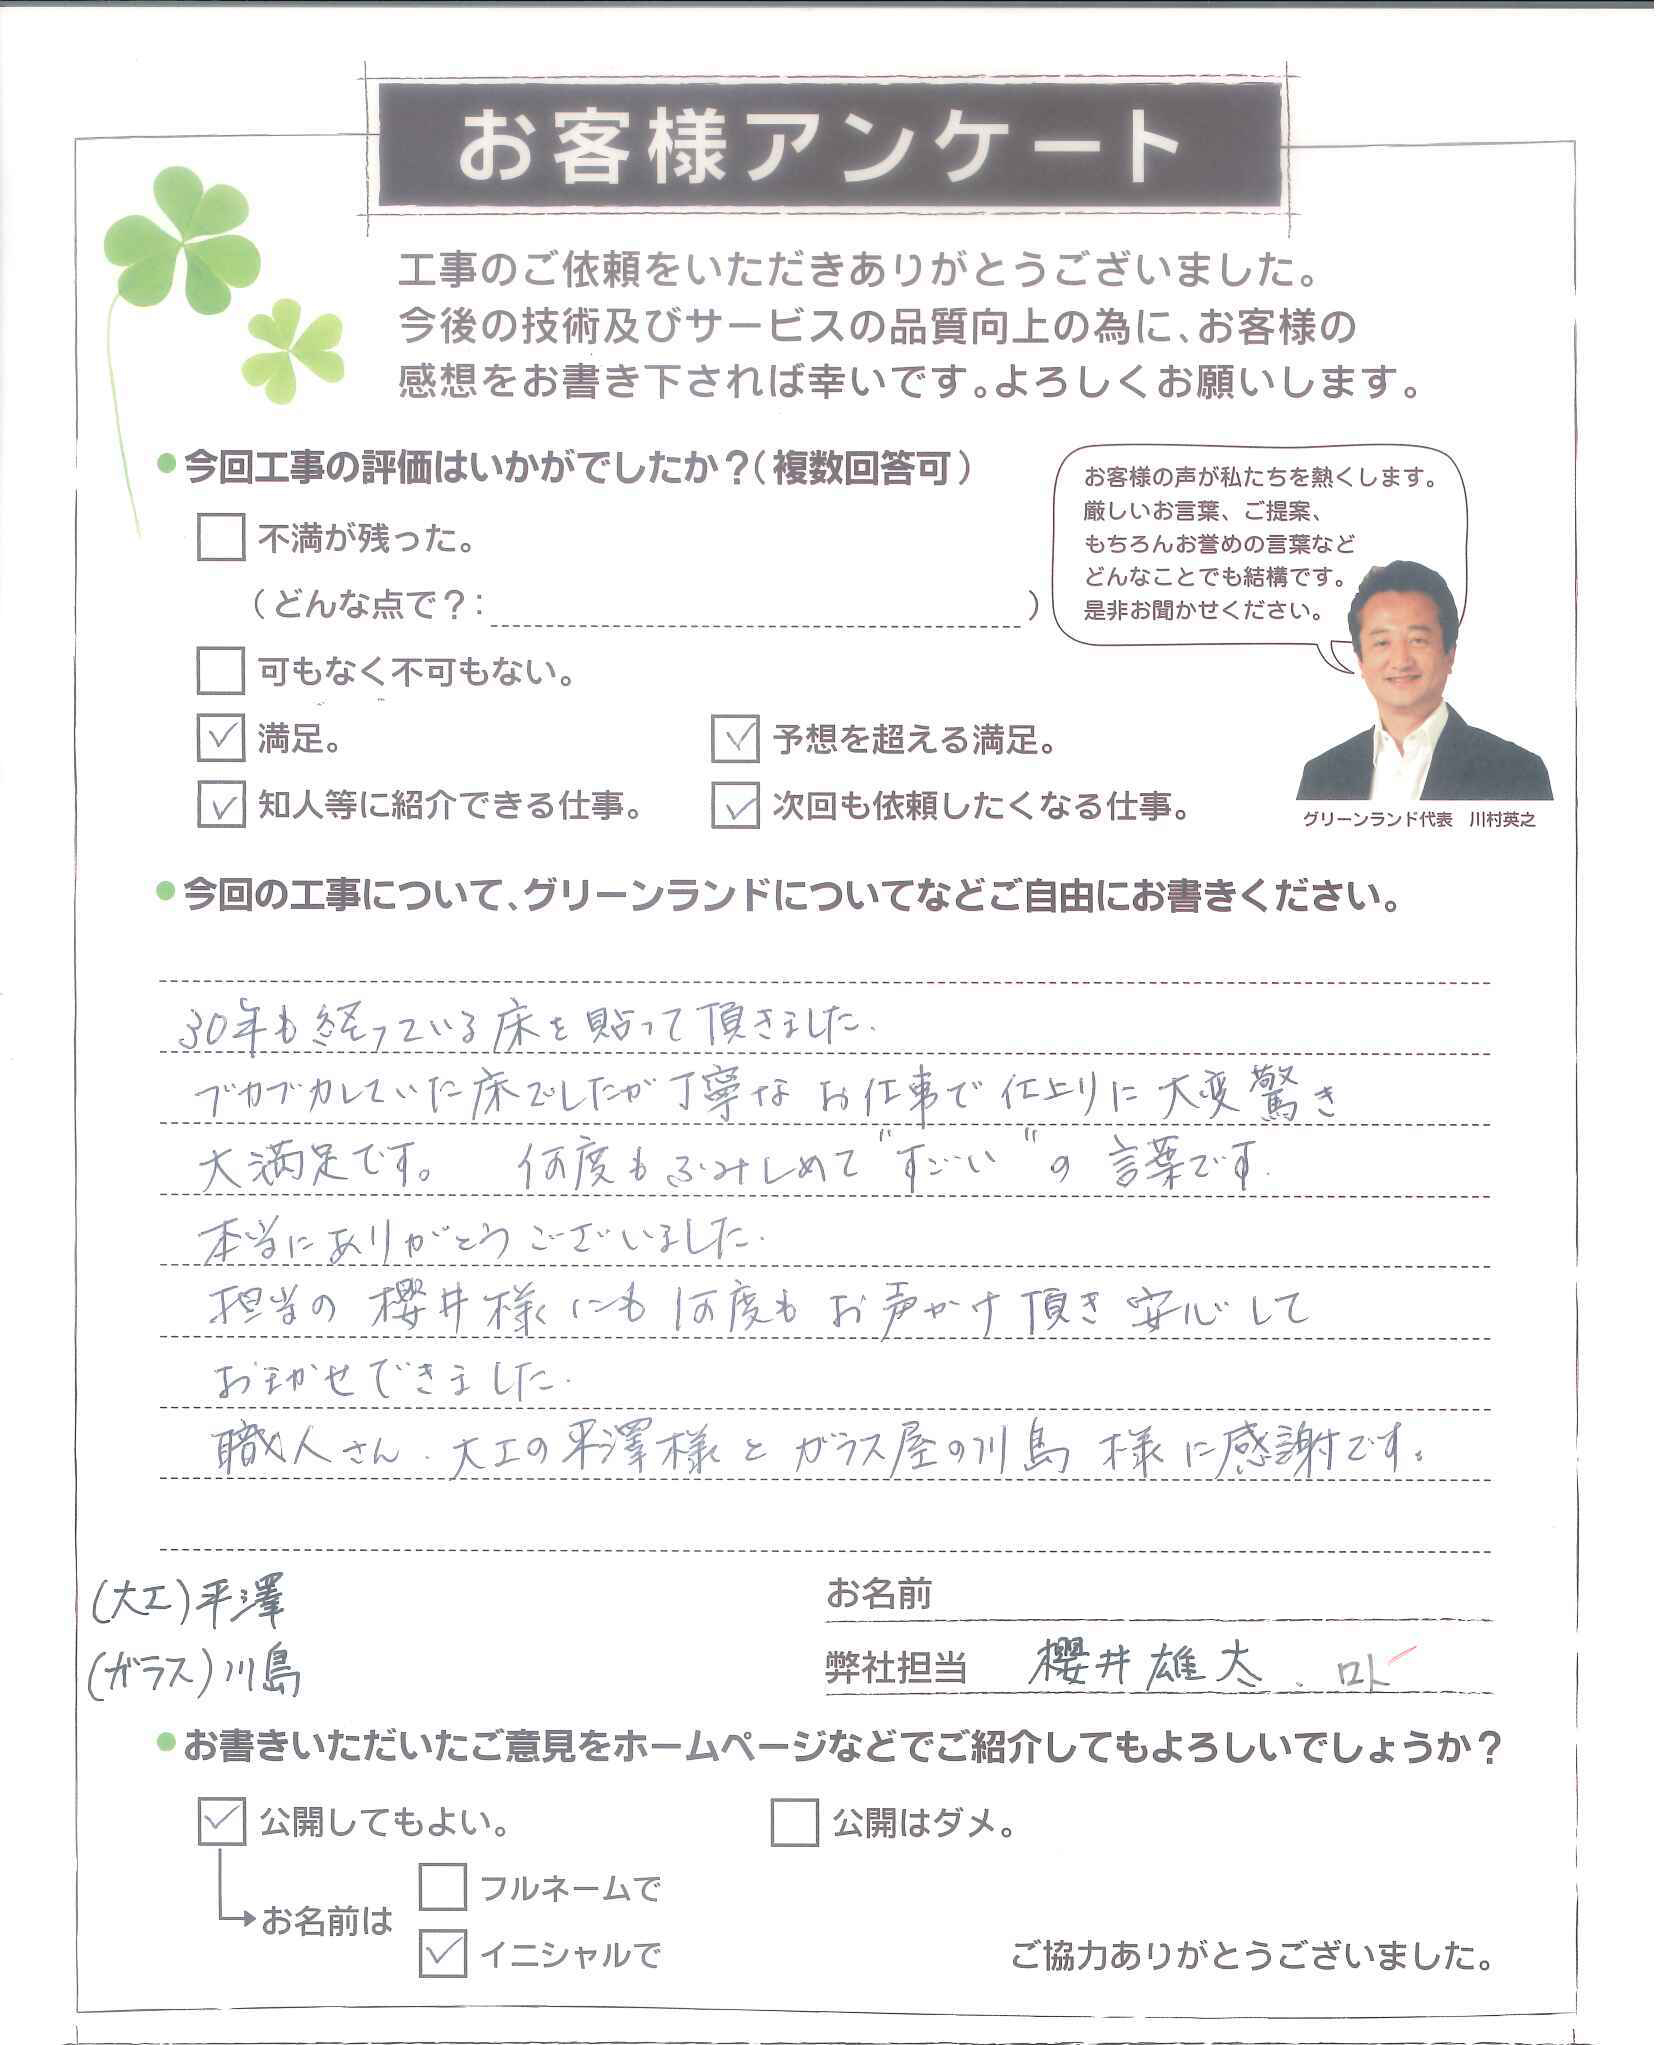 お客様アンケート
工事のご依頼をいただきありがとうございました。
今後の技術及びサービスの品質向上の為に、お客様の
感想をお書き下されば幸いです。よろしくお願いします。
今回工事の評価はいかがでしたか？（複数回答可）
お客様の声が私たちを熱くします。
厳しいお言葉、ご提案、
もちろんお誉めの言葉など
どんなことでも結構です。
是非お聞かせください。
不満が残った。
（どんな点で？：　）
可もなく不可もない。
満足。　予想を超える満足。
知人等に紹介できる仕事。　次回も依頼したくなる仕事。
グリーンランド代表　川村英之
今回の工事について、グリーンランドについてなどご自由にお書きください。
30年も経っている床を貼って頂きました.
ブカブカしていた床でしたが丁寧なお仕事で仕上りに大変驚き
大満足です。　何度もふみしめて"すごーい"の言葉です.
本当にありがとうございました.
担当の櫻井様にも何度もお声かけ頂き安心して
おまかせできました.
職人さん.大工の平澤様とガラス屋の川島様に感謝です。
(大工)平澤
(ガラス)川島
お名前
弊社担当　櫻井雄大.
お書きいただいたご意見をホームページなどでご紹介してもよろしいでしょうか？
公開してもよい。　公開はダメ。
フルネームで
お名前は
イニシャルで
ご協力ありがとうございました。